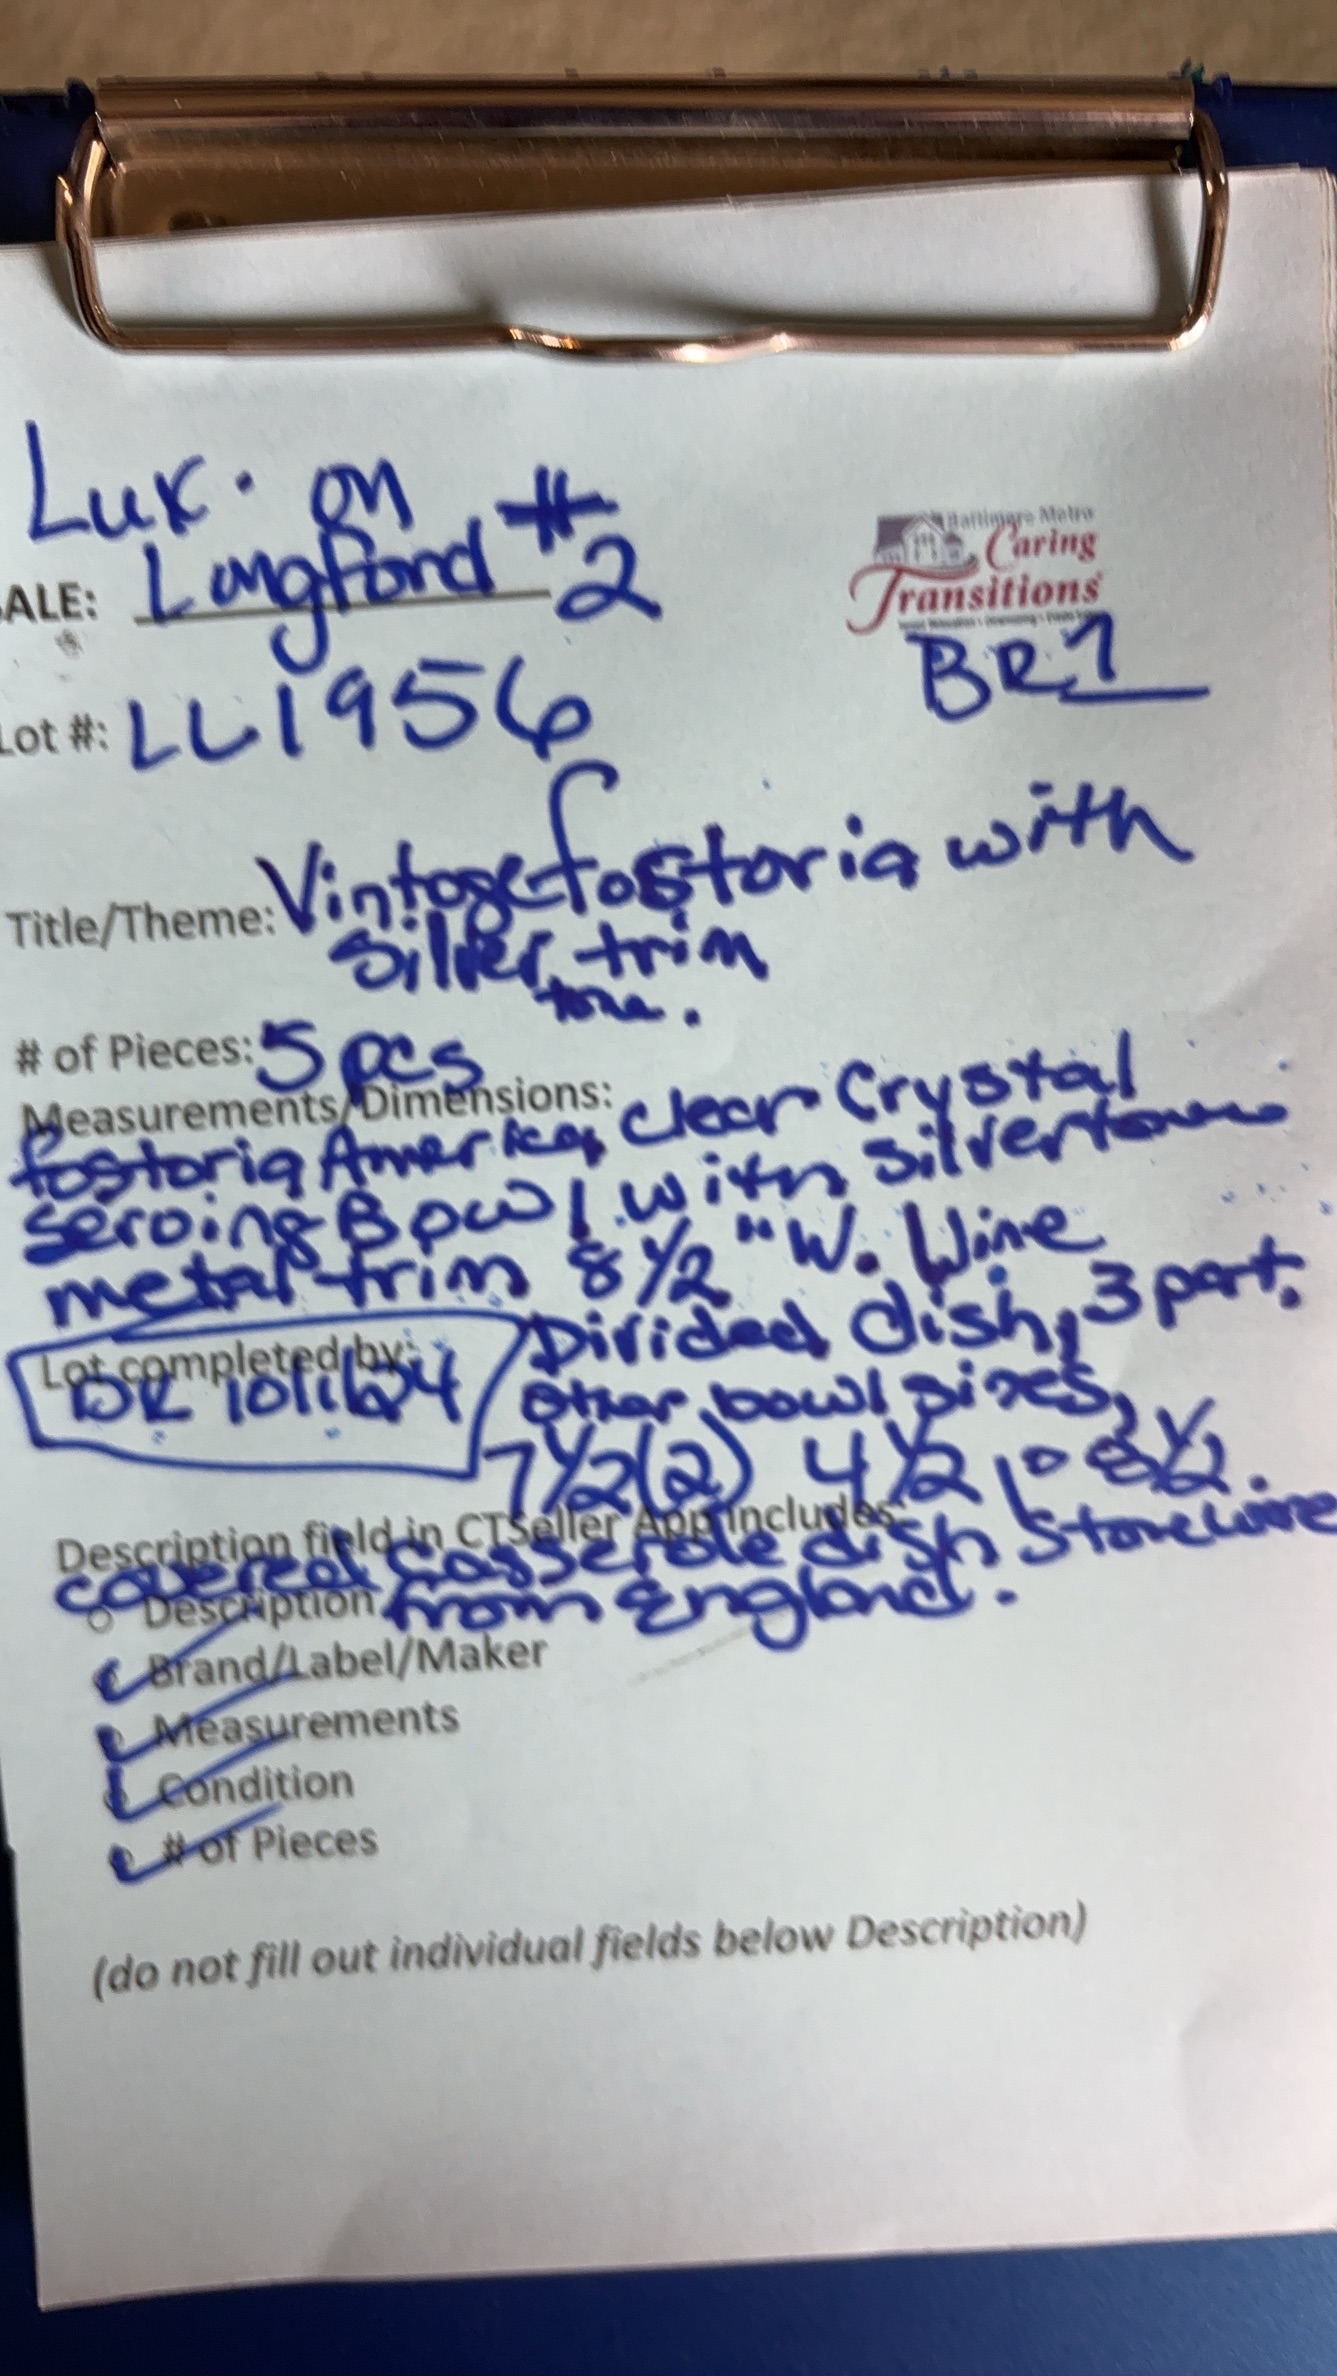 Lux. on
SALE: Longford #2
Baltimore Metro
Caring
Transitions
BR1
Lot #: LL1956
Title/Theme: Vintage fostoria with
silver tone trim.
# of Pieces: 5 pcs
Measurements/Dimensions:
fostoria America, clear Crystal
serving Bowl with silvertone
metal trim 8 1/2 "W. Wine
Divided dish, 3 part.
Lot completed by:
DR 10/1/24
other bowl sizes,
7 1/2 (2) 4 1/2 to 8 1/2.
Description field in CTSeller App includes:
covered Casserole dish Stoneware
from England.
Description
Brand/Label/Maker
Measurements
Condition
# of Pieces
(do not fill out individual fields below Description)